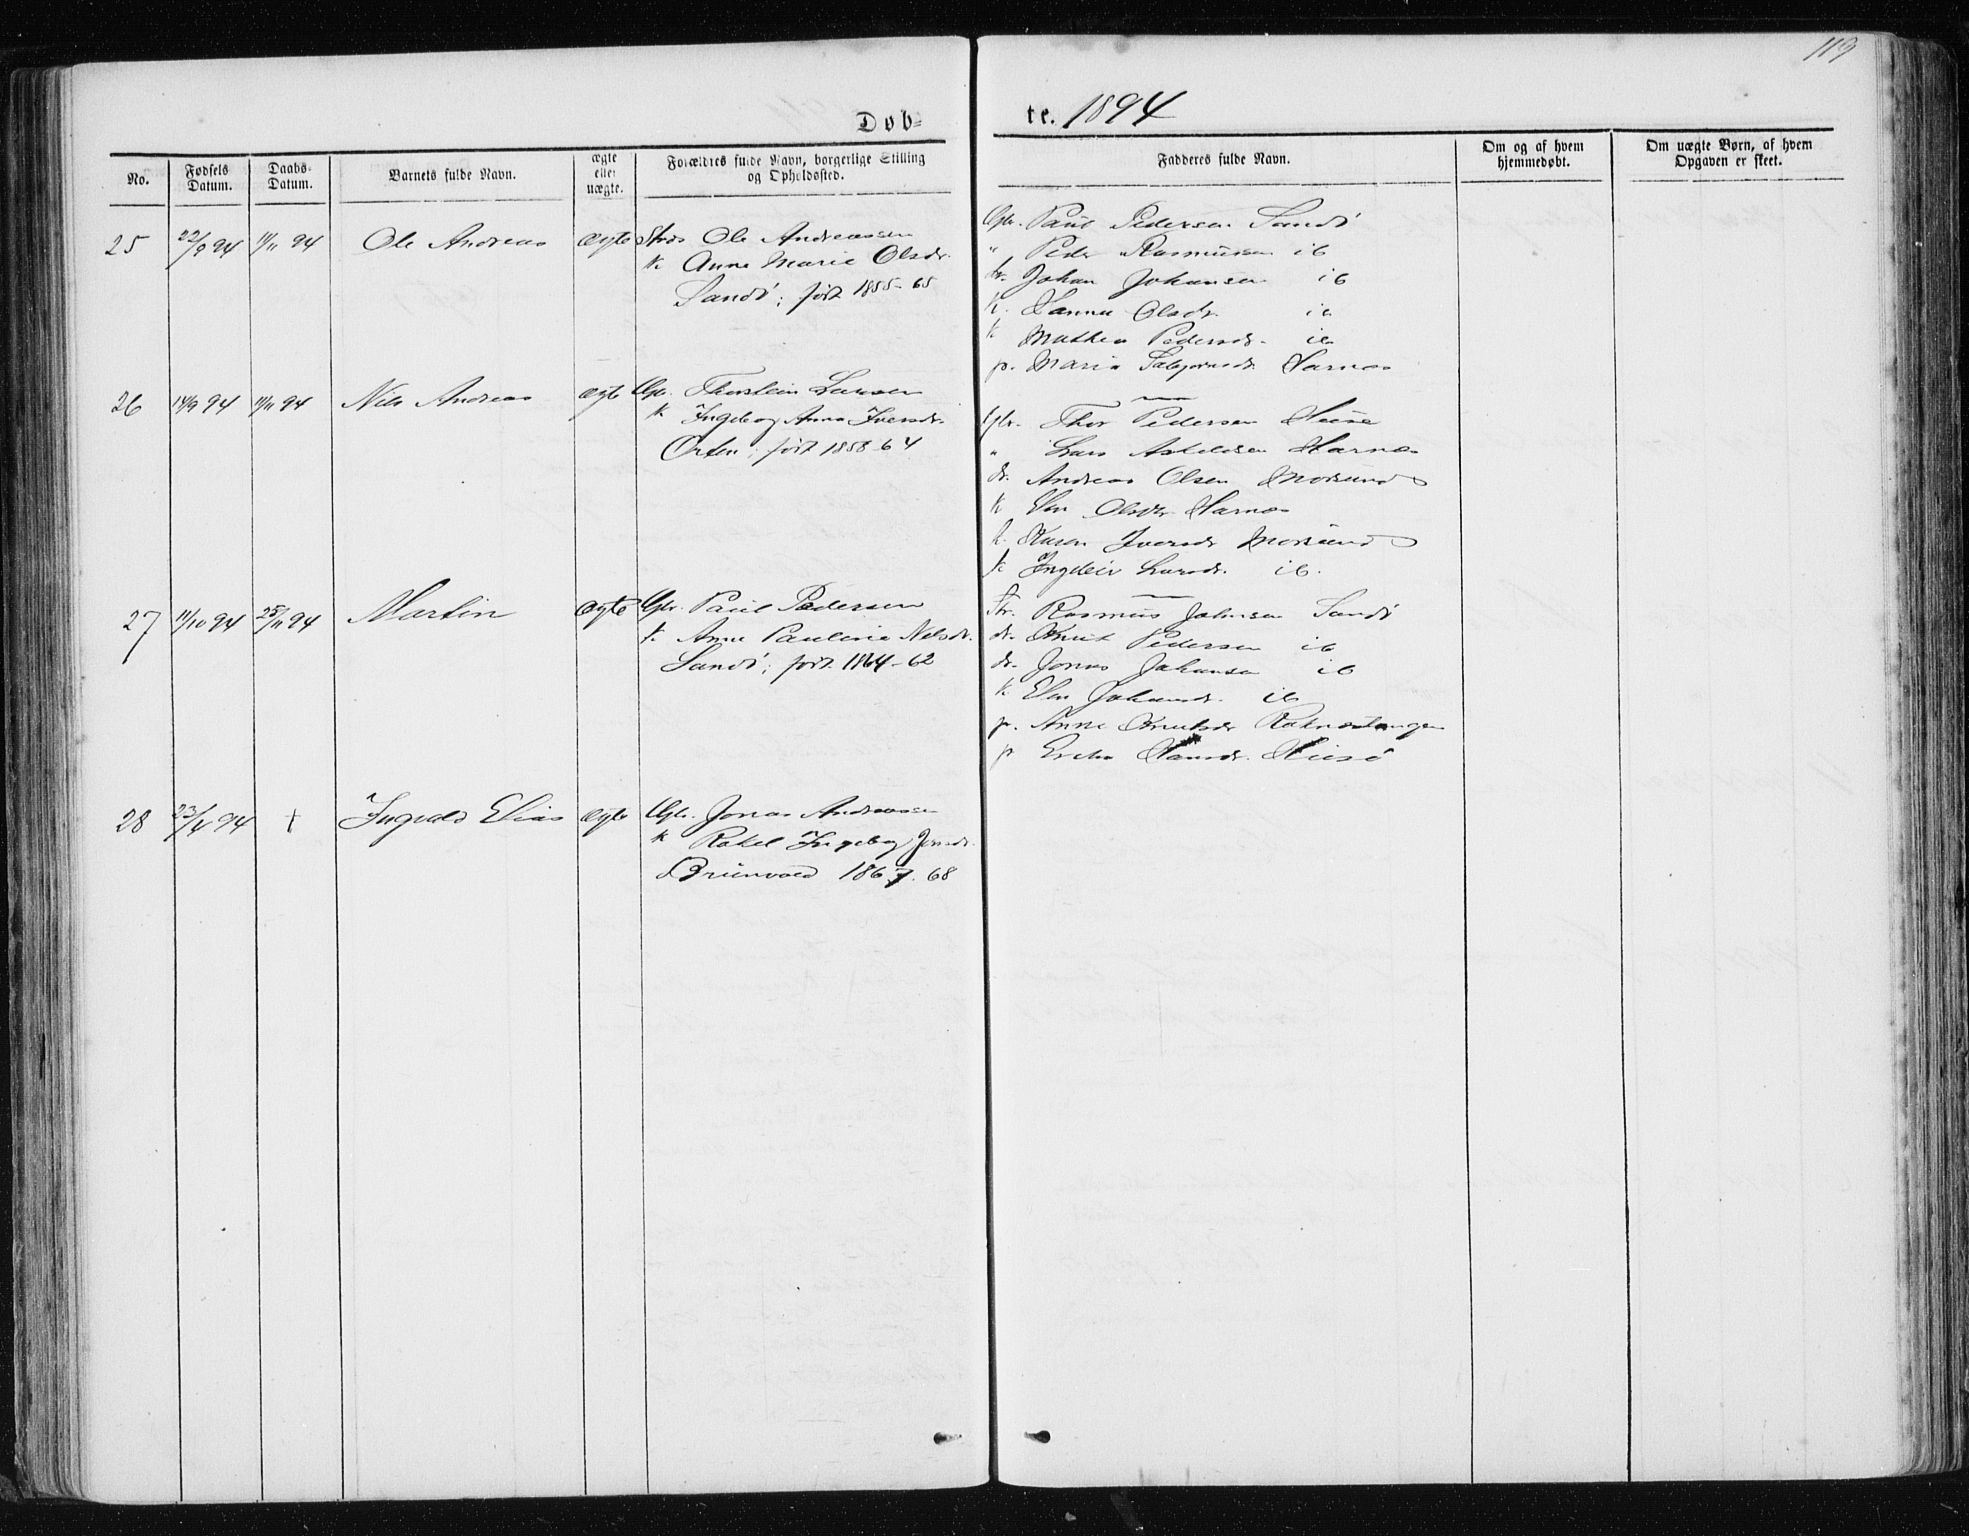 119
Døb-
te. 1894
No.
Fødsels Datum.
Daabs-Datum.
Barnets fulde Navn.
ægte eller uægte.
Forældres fulde Navn, borgerlige Stilling og Opholdssted.
Fadderes fulde Navn.
Om og af hvem hjemmedøbt.
Om uægte Børn, af hvem Opgaven er skeet.
25 22/9 94 11/11 94 Ole Andreas ægte Ole Andreassen
k. Anne Marie Olsdr.
Sandö; født 1855-65
Gbr. Paul Pedersen Sandö
" Peder Rasmussen ib
dr. Johan Johansen ib
k. Hanna Olsdr. ib
k Mathea Pedersdr. ib
p. Maria Harnes
26 14/9 94 11/11 94 Nils Andreas ægte Gbr. Thorstein Larsen
k Ingeborg Anna Iversdr.
Orten; født 1858-64
Gbr. Thor Pedersen
" Lars Harnes
dr. Andreas Olsen Morsund
k Elen Olsdr. Harnes
k. Karen Iversdr. Morsund
k Larsdr. ib.
27 11/10 94 25/11 94 Martin ægte Gbr. Paul Pedersen
k. Anne Pauline Nilsdr.
Sandö; født 1864-62
Rasmus Johnsen Sandö
dr. Knut Pedersen ib
dr. Jonas Johansen ib
k Elen Johansdr. ib
p. Anne Knutsdr. Raknestangen
p Hansdr.
28 23/4 94 + Ingvald Elias ægte Gbr. Jonas Andreassen
k Rakel Ingeborg Jonsdr.
Brunvold 1867. 68